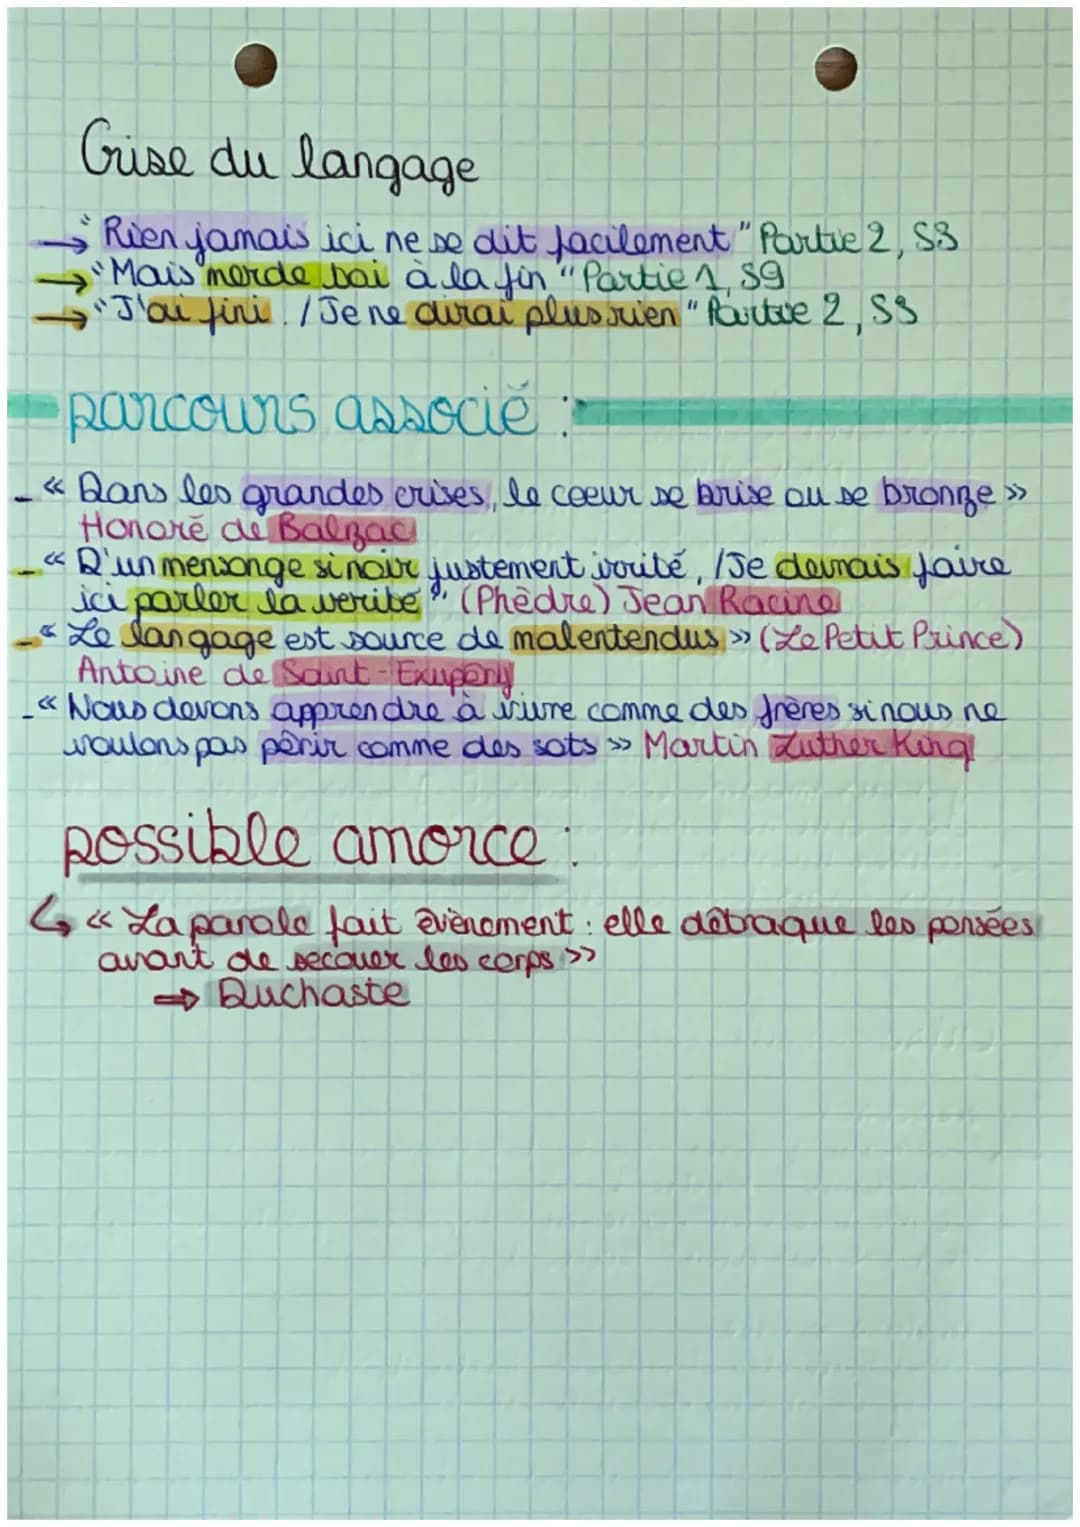 Crise du langage
→ "Rien jamais ici ne se dit facilement" Partie 2, S3
→ "Mais merde toi à la fin" Partie 1, S9
→ "J'ai fini. / Je ne dirai plus rien" Partie 2, S3
parcours associé :
- « Dans les grandes crises, le coeur se brise ou se bronze »
Honoré de Balzac
- « D'un mensonge si noir justement irrité, / Je devrais faire
ici parler la verité ". (Phèdre) Jean Racine
- « Le langage est source de malentendus » (Le Petit Prince)
Antoine de Saint-Exupéry
- « Nous devons apprendre à vivre comme des frères si nous ne
voulons pas périr comme des sots » Martin Luther King
possible amorce :
↳ « La parole fait évènement : elle détraque les pensées
avant de secouer les corps »
⇒ Duchaste